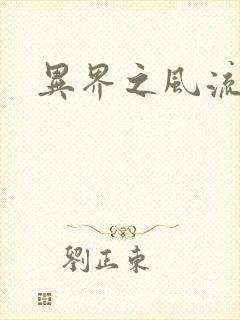 異界之風流
劉正東